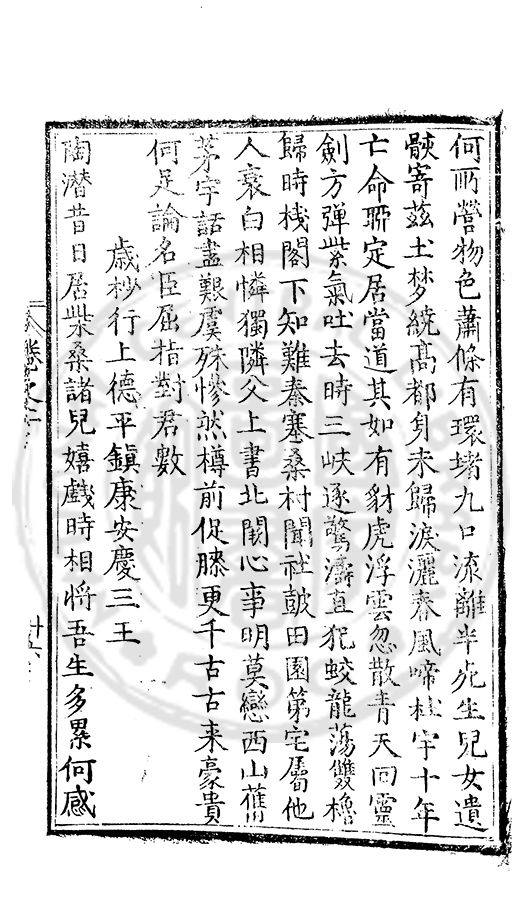 何所營物色蕭條有環堵九口流離半死生兒女遺
骸寄茲土梦繞高都身未歸淚灑春風啼杜宇十年
亡命聊定居當道其如有豺虎浮雲忽散青天回靈
劍方彈紫氣吐去時三峽逐驚濤直犯蛟龍蕩雙櫓
歸時棧閣下知難秦塞桑村聞社鼓田園第宅屬他
人衰白相憐獨隣父上書北闕心事明莫戀西山舊
茅宇話盡艱虞殊慘然樽前促膝更千古古来豪貴
何足論名臣屈指對君數
歲杪行上德平鎮康安慶三王
陶潛昔日居柴桑諸兒嬉戲時相將吾生多累何感